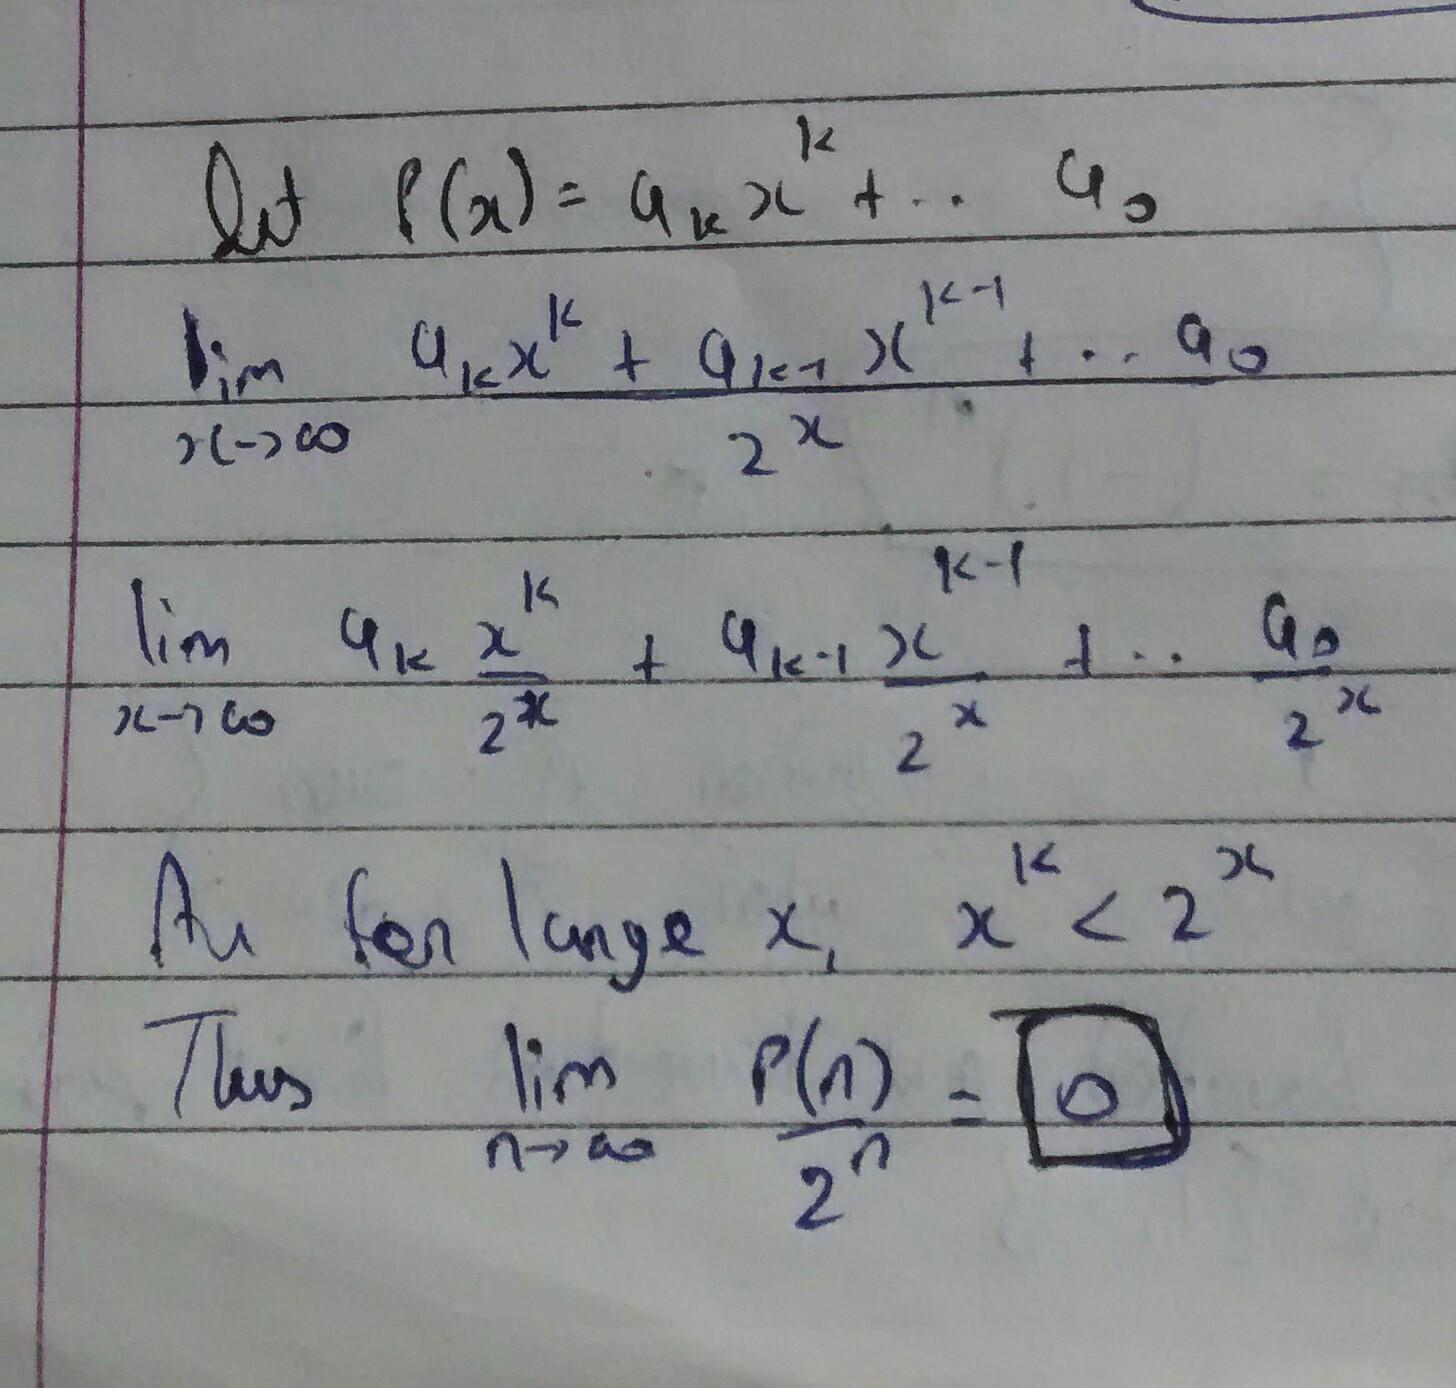 let P(x) = a_k x^k + .. a_0
lim x->∞ (a_k x^k + a_{k-1} x^{k-1} + ... a_0) / 2^x
lim x->∞ a_k x^k/2^x + a_{k-1} x^{k-1}/2^x + ... a_0/2^x
As for large x, x^k < 2^x
Thus lim n->∞ P(n)/2^n = 0